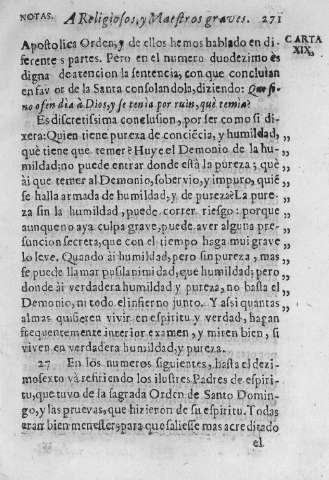 NOTAS. A Religiosos, y Maestros graves. 271
CARTA XIX.
Apostolica Orden, y de ellos hemos hablado en di-
ferentes partes. Pero en el numero duodezimo es
digna de atencion la sentencia, con que concluían
en favor de la Santa consolandola, diziendo: Que si
no ofendia à Dios, y se tenia por ruin, què temia?
Es discretissima conclusion, por ser como si di-
xera: Quien tiene pureza de conciẽcia, y humildad, „
què tiene que temer? Huye el Demonio de la hu- „
mildad; no puede entrar donde està la pureza; què „
ài que temer al Demonio, sobervio, y impuro, quiẽ „
se halla armada de humildad, y de pureza? La pure- „
za sin la humildad, puede correr riesgo: porque „
aunque no aya culpa grave, puede aver alguna pre- „
suncion secreta, que con el tiempo haga mui grave „
lo leve. Quando ài humildad, pero sin pureza, mas „
se puede llamar pusilanimidad, que humildad; pero „
donde ài verdadera humildad y pureza, no basta el „
Demonio, ni todo el infierno junto. Y assi quantas „
almas quisieren vivir en espiritu y verdad, hagan
frequentemente interior examen, y miren bien, si
viven en verdadera humildad, y pureza.
27 En los numeros siguientes, hasta el dezi-
mosexto và refiriendo los ilustres Padres de espiri-
tu, que tuvo de la sagrada Orden de Santo Domin-
go, y las pruevas, que hizieron de su espiritu. Todas
eran bien menester, para que saliesse mas acreditado
el